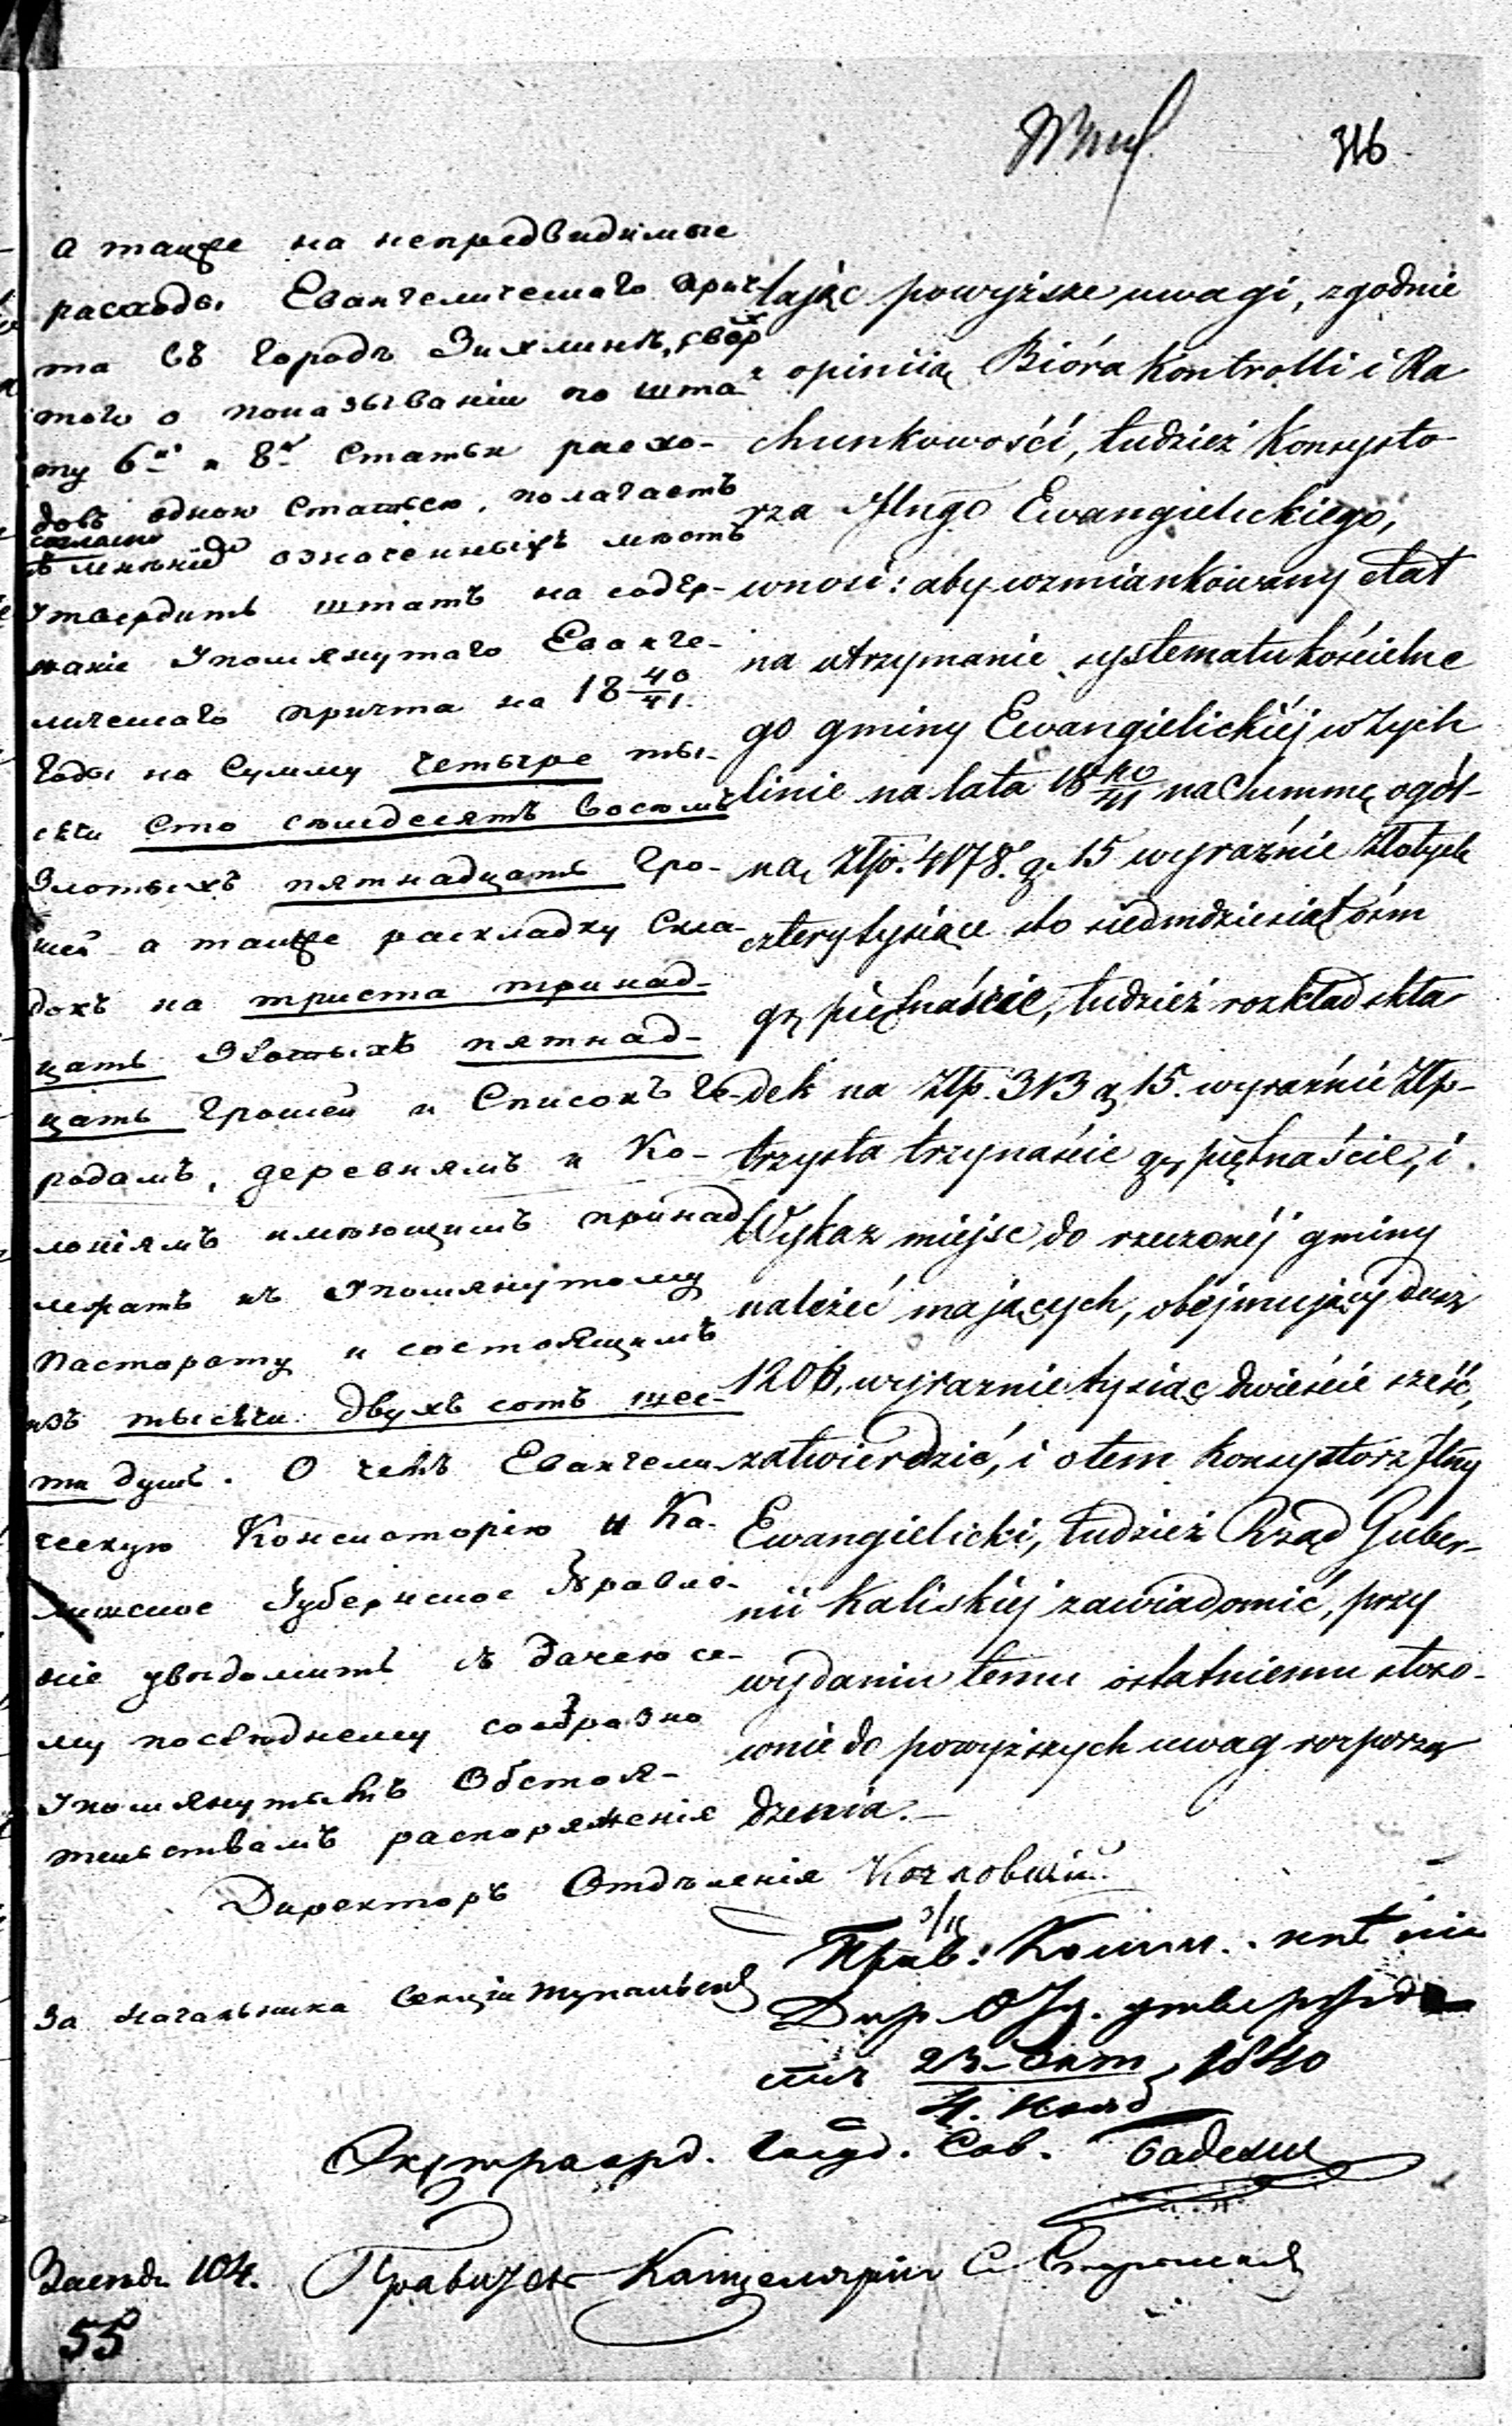 316
а также на непредвидимые
расходы Евангелическаго прич-
та въ городѣ Зихлинѣ, сверх
того о показываніи по шта-
ту 6й и 8й статьи расхо-
довъ одною статьею, полагаетъ
согласно
мнѣнію означенныхъ мѣстъ
утвердить штатъ на содер-
жаніе упомянутаго Еванге-
лическаго причта на 18 40/41.
годы на сумму четыре ты-
сячи сто семдесятъ восемь
злотыхъ пятнадцать гро-
шей а также раскладку скла-
докъ на триста тринад-
цать злотыхъ пятнад-
цать грошей и списокъ го-
родамъ, деревнямъ и ко-
лоніямъ имѣющимъ принад-
лежать къ упомянутому
пасторату и состоящимъ
изъ тысячи двухъ сотъ шес-
ти душъ. О чемъ Евангели-
ческую Консисторію и Ка-
лишское Губернское Правле-
ніе увѣдомить съ дачею се-
му послѣднему сообразно
упомянутымъ обстоя-
тельствамъ распоряженія
tając powyższe uwagi, zgodnie
z opiniią Bióra Kontrolli i Ra
chunkowości, tudzież Konsysto-
rza Jlngo Ewangielickiego,
wnosi: aby wzmiankowany etat
na utrzymanie systematu kościelne
go gminy Ewangielickiéj w Zych
linie na lata 18 40/41 na Summę ogól-
ną Złp. 4178. g. 15 wyraźnie Złotych
cztery tysiące sto siedmdziesiąt ośm
gr. piętnaście, tudzież rozkład skła
dek na Złp. 313 g. 15. wyraźnie Złp-
trzysta trzynaście gr. piętnaście, i
Wykaz miejsc do rzeczonéj gminy
należeć mających, obejmujący dusz
1206, wyraznie tysiąc dwieście sześć,
zatwierdzić, i o tem Konsystorz Jlny
Ewangielicki, tudzież Rząd Guber-
nii Kaliskiéj zawiadomić, przy
wydaniu temu ostatniemu stoso-
wnie do powyższych uwag rozporzą
dzenia.—
Директоръ Отдѣленія
За Начальника Секціи
Прав: Комм.
Дир. утвержда
етъ 23 Окт / 4. Нояб 1840
Экстраорд. Госуд. Сов.
Засѣд. 104. Правитель Канцеляріи
55